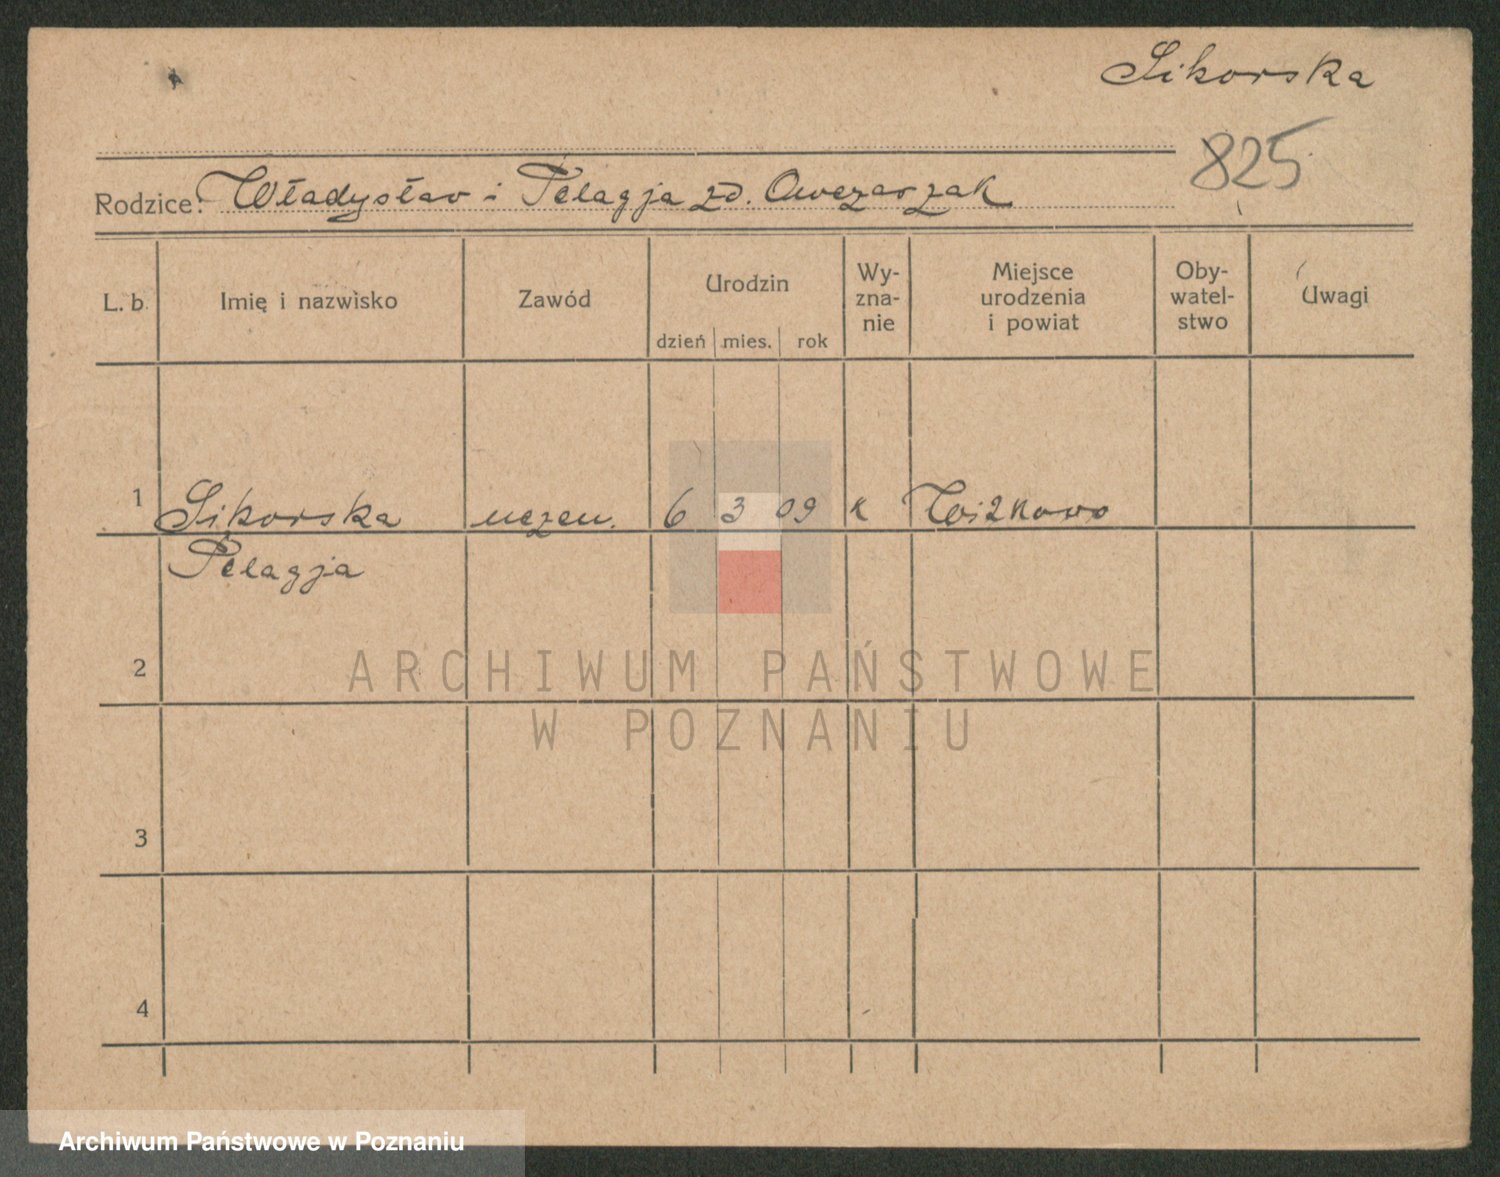 Sikorska
825
Rodzice: Władysław i Pelagja zd. Owczarzak
L. b. Imię i nazwisko Zawód Urodzin Wy-zna-nie Miejsce urodzenia i powiat Oby-watel-stwo Uwagi
dzień mies. rok
1 Sikorska uczen. 6 3 09 k
Pelagja
2
ARCHIWUM PAŃSTWOWE
W POZNANIU
3
4
Archiwum Państwowe w Poznaniu